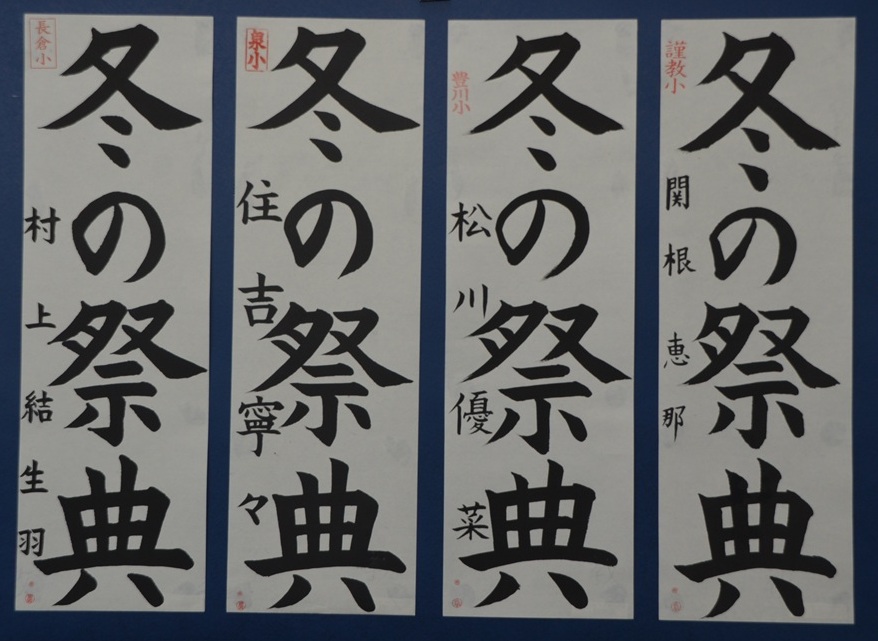 謹教小
冬の祭典
関根恵那
豊川小
冬の祭典
松川優菜
泉小
冬の祭典
住吉寧々
長倉小
冬の祭典
村上結生羽